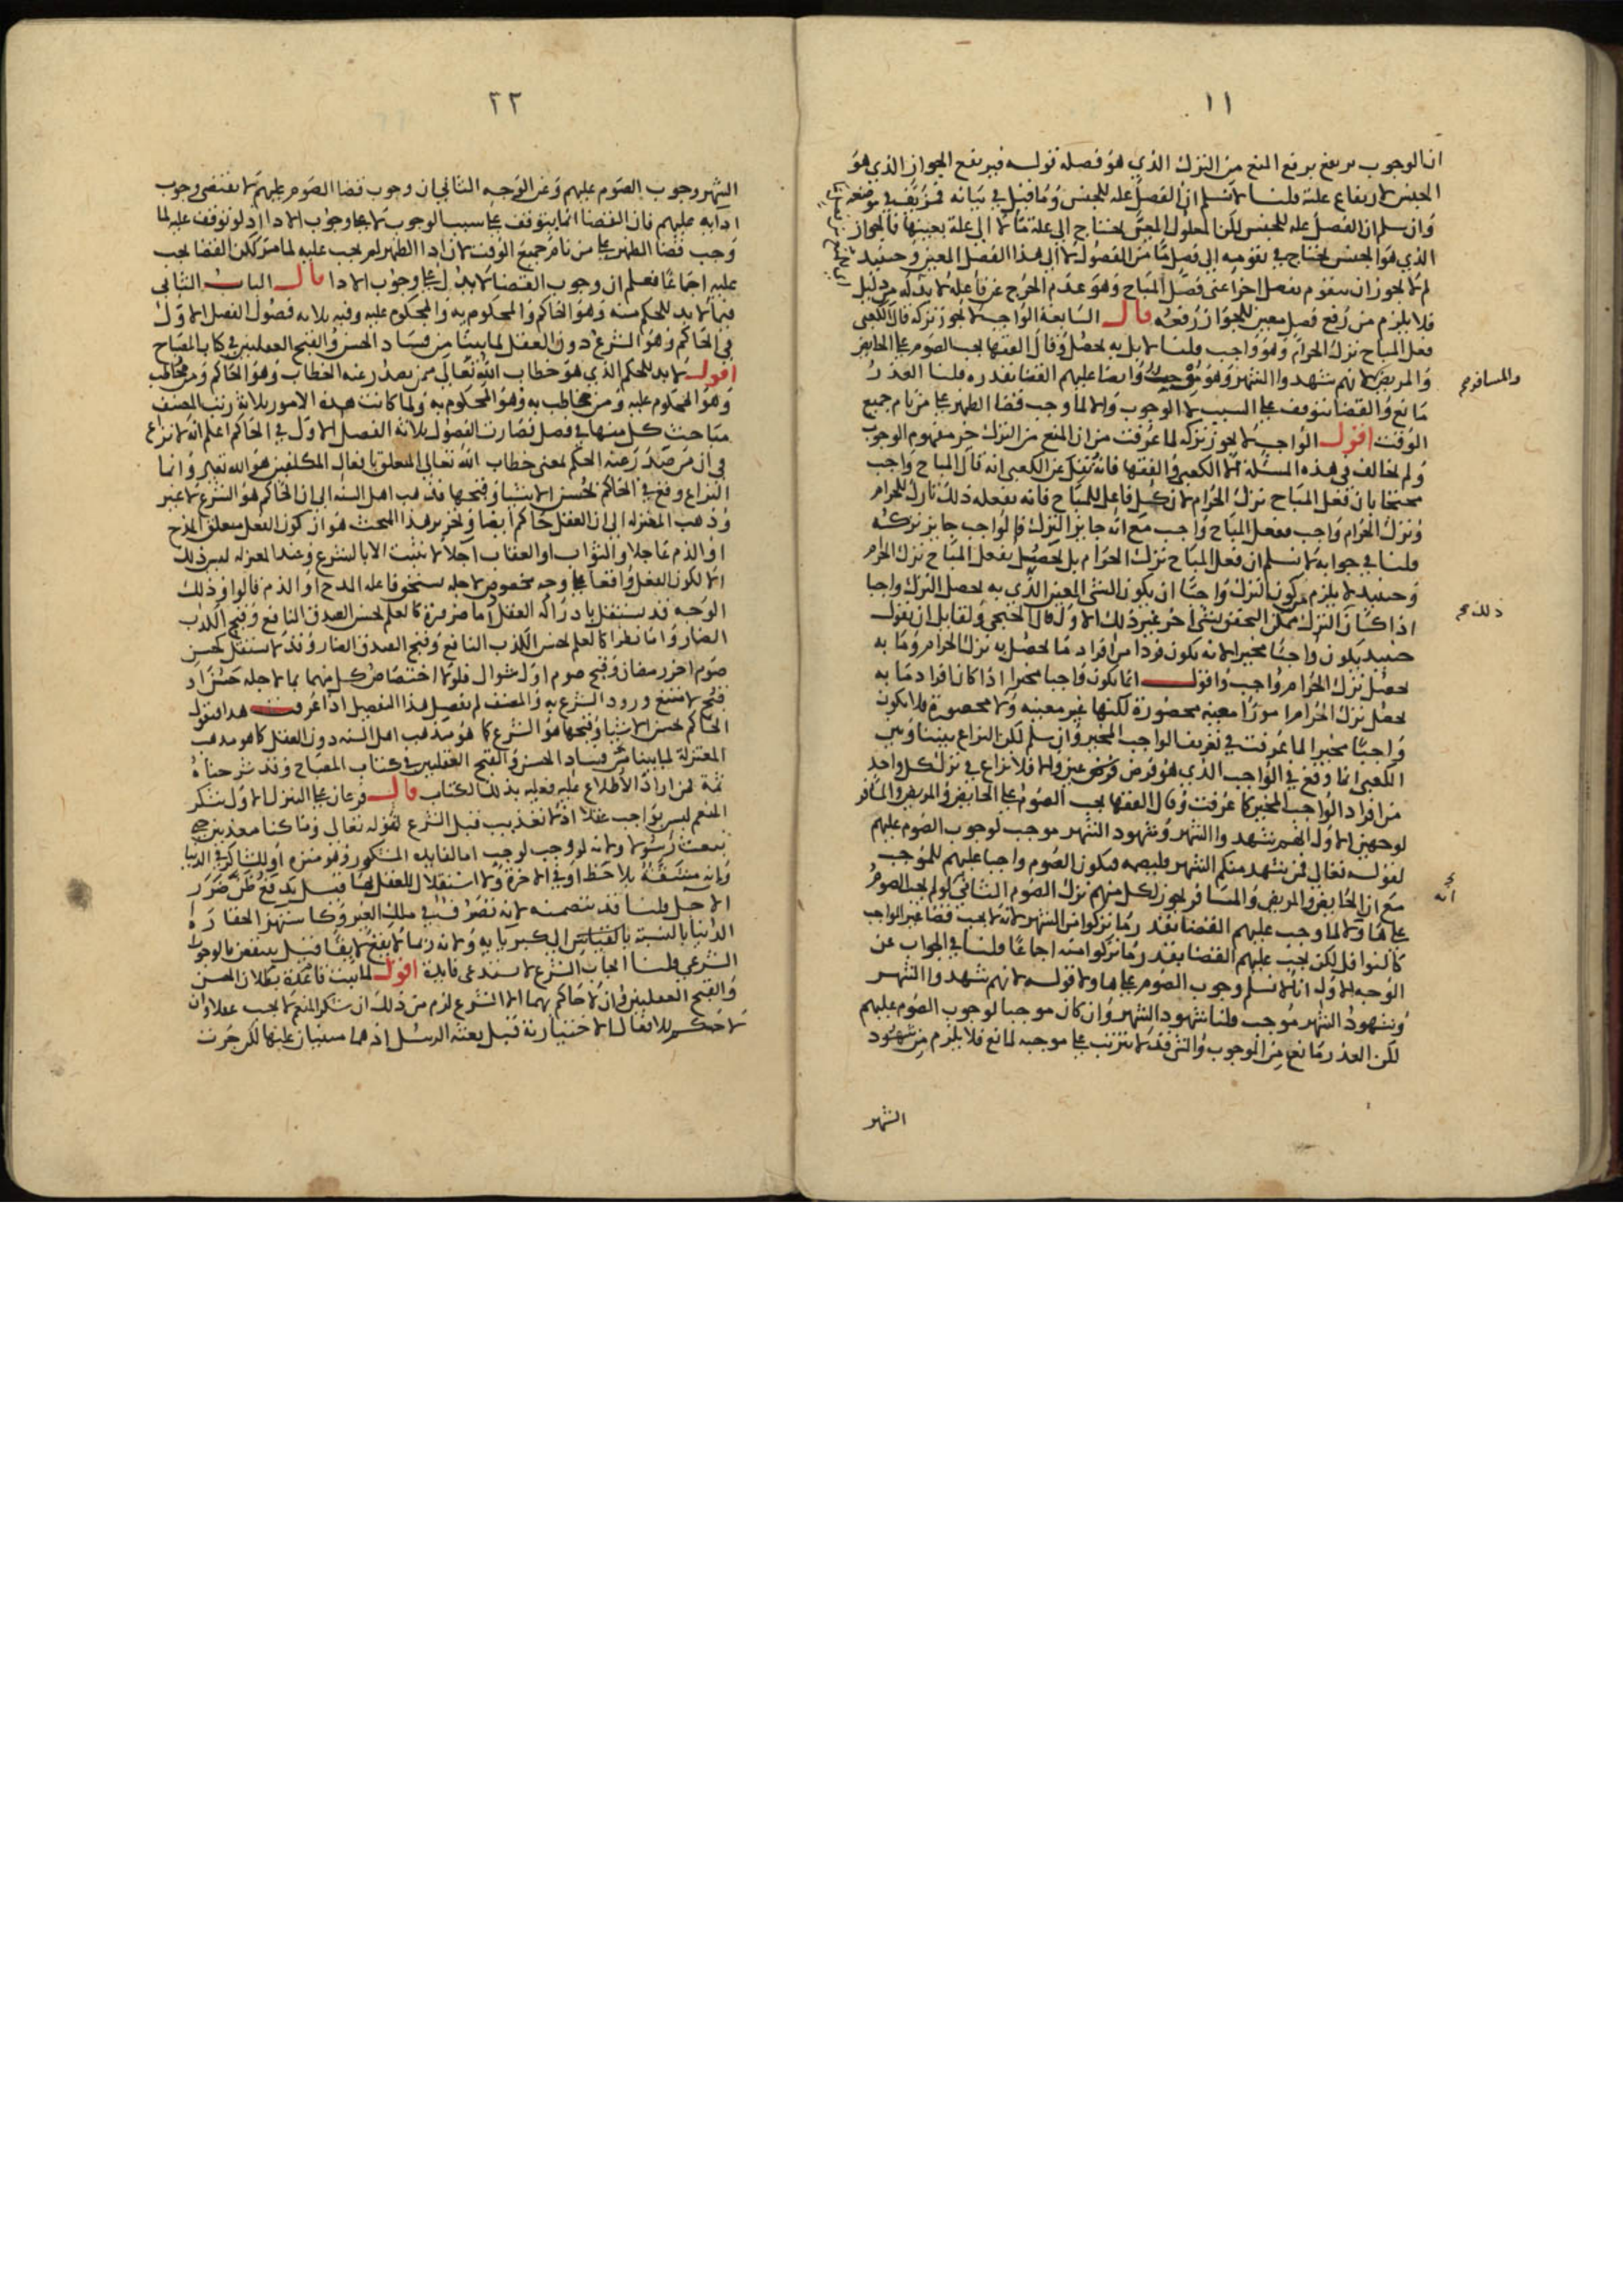 ١١
ان الوجوب يرتفع برفع المنع من الترك الذي هو فصله قوله فيرتفع الجواز الذي هو
الجنس لارتفاع علته قلنا لا نسلم ان الفصل علة للجنس وما قيل في بيانه فمزيف في موضعه
وان سلم ان الفصل علة للجنس لكن المعلول المعين يحتاج الى علة ما لا الى علة بعينها فالجواز
الذي هو الجنس يحتاج في تقومه الى فصل ما من الفصول لا الى هذا الفصل المعين وحينيذ
لم لا يجوز ان يتقوم بفصل اخر اعني فصل المباح وهو عدم الحرج عن فاعله لا بد له من دليل
فلا يلزم من رفع فصل معين للجواز رفعه قال السابعة الواجب لا يجوز تركه قال الكعبي
فعل المباح ترك الحرام وهو واجب قلنا لا بل به يحصل وقال الفقها يجب الصوم على الحايض
والمريض لانهم شهدوا الشهر وهو موجب وايضا عليهم القضا بقدره قلنا العذر
والمسافر صح
مانع والقضا يتوقف على السبب لا الوجوب والا لما وجب قضا الظهر على من نام جميع
الوقت اقول الواجب لا يجوز تركه لما عرفت من ان المنع من الترك جز مفهوم الوجوب
ولم يخالف في هذه المسئلة الا الكعبي والفقها فانه نقل عن الكعبي انه قال المباح واجب
محتجا بان فعل المباح ترك الحرام لان كل فاعل للمباح فانه بفعله ذلك تارك للحرام
وترك الحرام واجب ففعل المباح واجب مع انه جايز الترك فالواجب جايز تركه
قلنا في جوابه لا نسلم ان فعل المباح ترك الحرام بل يحصل بفعل المباح ترك الحرام
وحينيذ لا يلزم من كون الترك واجبا ان يكون الشي المعين الذي به يحصل الترك واجبا
اذا كان الترك ممكن التحقق بشي اخر غير ذلك الاول قال الخنجي ولقايل ان يقول
ذلك صح
حينيذ يكون واجبا مخيرا لانه يكون فردا من افراد ما يحصل به ترك الحرام وما به
يحصل ترك الحرام واجب واقول انما يكون واجبا مخيرا اذا كان افراد ما به
يحصل ترك الحرام امورا معينة محصورة لكنها غير معينة ولا محصورة فلا يكون
واجبا مخيرا لما عرفت في تعريف الواجب المخير وان سلم لكن النزاع بيننا وبين
الكعبي انما وقع في الواجب الذي هو فرض عين والا فلا نزاع في ترك كل واحد
من افراد الواجب المخير كما عرفت وقال الفقها يجب الصوم على الحايض والمريض والمسافر
لوجهين الاول انهم شهدوا الشهر وشهود الشهر موجب لوجوب الصوم عليهم
لقوله تعالى فمن شهد منكم الشهر فليصمه فيكون الصوم واجبا عليهم للموجب
مع ان الحايض والمريض والمسافر يجوز لكل منهم ترك الصوم الثاني لو لم يجب الصوم
انه
عليها والا لما وجب عليهم القضا بقدر ما تركوا من الشهر لانه لا يجب قضا غير الواجب
كالنوافل لكن يجب عليهم القضا بقدر ما تركوا منه اجماعا قلنا في الجواب عن
الوجه الاول انا لا نسلم وجوب الصوم عليها ولا قوله لانهم شهدوا الشهر
وشهود الشهر موجب قلنا شهود الشهر وان كان موجبا لوجوب الصوم عليهم
لكن العذر مانع من الوجوب والشي قد لا يترتب على موجبه لمانع فلا يلزم من شهود
الشهر
٢٢
الشهر وجوب الصوم عليهم وعن الوجه الثاني ان وجوب قضا الصوم عليهم لا يقتضى وجوب
ادايه عليهم فان القضا انما يتوقف على سبب الوجوب لا على وجوب الادا اذ لو توقف عليه لما
وجب قضا الظهر على من نام جميع الوقت لان ادا الظهر لم يجب عليه لما مر لكن القضا يجب
عليه اجماعا فعلم ان وجوب القضا لا يدل على وجوب الادا قال الباب الثاني
فيما لا بد للحكم منه وهو الحاكم والمحكوم به والمحكوم عليه وفيه ثلاثة فصول الفصل الاول
في الحاكم وهو الشرع دون العقل لما بينا من فساد الحسن والقبح العقليين في كتاب المصباح
اقول لا بد للحكم الذي هو خطاب الله تعالى ممن يصدر عنه الخطاب وهو الحاكم ومن مخاطب
وهو المحكوم عليه ومن مخاطب به وهو المحكوم به ولما كانت هذه الامور ثلاثة رتب المصنف
مباحث كل منها في فصل فصارت الفصول ثلاثة الفصل الاول في الحاكم اعلم انه لا نزاع
في ان من صدر عنه الحكم لمعنى خطاب الله تعالى المتعلق بافعال المكلفين هو الله تعالى وانما
النزاع وقع في الحاكم بحسن الاشيا وقبحها فذهب اهل السنه الى ان الحاكم هو الشرع لا غير
وذهب المعتزله الى ان العقل حاكم ايضا وتحرير هذا المبحث هو ان كون الفعل متعلق المدح
او الذم عاجلا والثواب او العقاب آجلا لا يثبت الا بالشرع وعند المعتزله ليس ذلك
الا لكون الفعل واقعا على وجه مخصوص لاجله يستحق فاعله المدح او الذم قالوا وذلك
الوجه قد يستقل بادراكه العقل اما ضرورة كالعلم بحسن الصدق النافع وقبح الكذب
الضار واما نظرا كالعلم بحسن الكذب النافع وقبح الصدق الضار وقد لا يستقل كحسن
صوم اخر رمضان وقبح صوم اول شوال فلولا اختصاص كل منهما بما لاجله حسن او
قبح لامتنع ورود الشرع به والمصنف لم يفصل هذا التفصيل اذا عرفت هذا فنقول
الحاكم بحسن الاشيا وقبحها هو الشرع كما هو مذهب اهل السنه دون العقل كما هو مذهب
المعتزلة لما بينا من فساد الحسن والقبح العقليين في كتاب المصباح وقد شرحناه
ثمة فمن اراد الاطلاع عليه فعليه بذلك الكتاب قال فرعان على التنزل الاول شكر
المنعم ليس بواجب عقلا اذ لا تعذيب قبل الشرع لقوله تعالى وما كنا معذبين حتى
نبعث رسولا ولانه لو وجب لوجب اما لفايدة المشكور وهو منزه او للشاكر في الدنيا
وانه مشقة بلا حظ او في الاخرة ولا استقلال للعقل بها قيل يدفع ظن ضرر
الاجل قلنا قد يتضمنه لانه تصرف في ملك الغير وكالاستهزا لحقارة
الدنيا بالنسبة بالقياس الى كبريايه ولانه ربما لا يقع لايقا قيل ينتقض بالوجوب
الشرعي قلنا ايجاب الشرع لا يستدعي فايدة اقول لما ثبت قاعدة بطلان الحسن
والقبح العقليين وان لا حاكم بهما الا الشرع لزم من ذلك ان شكر المنعم لا يجب عقلا وان
لا حكم للافعال الاختيارية قبل بعثة الرسل اذ هما مبنيان عليها لكن جرت